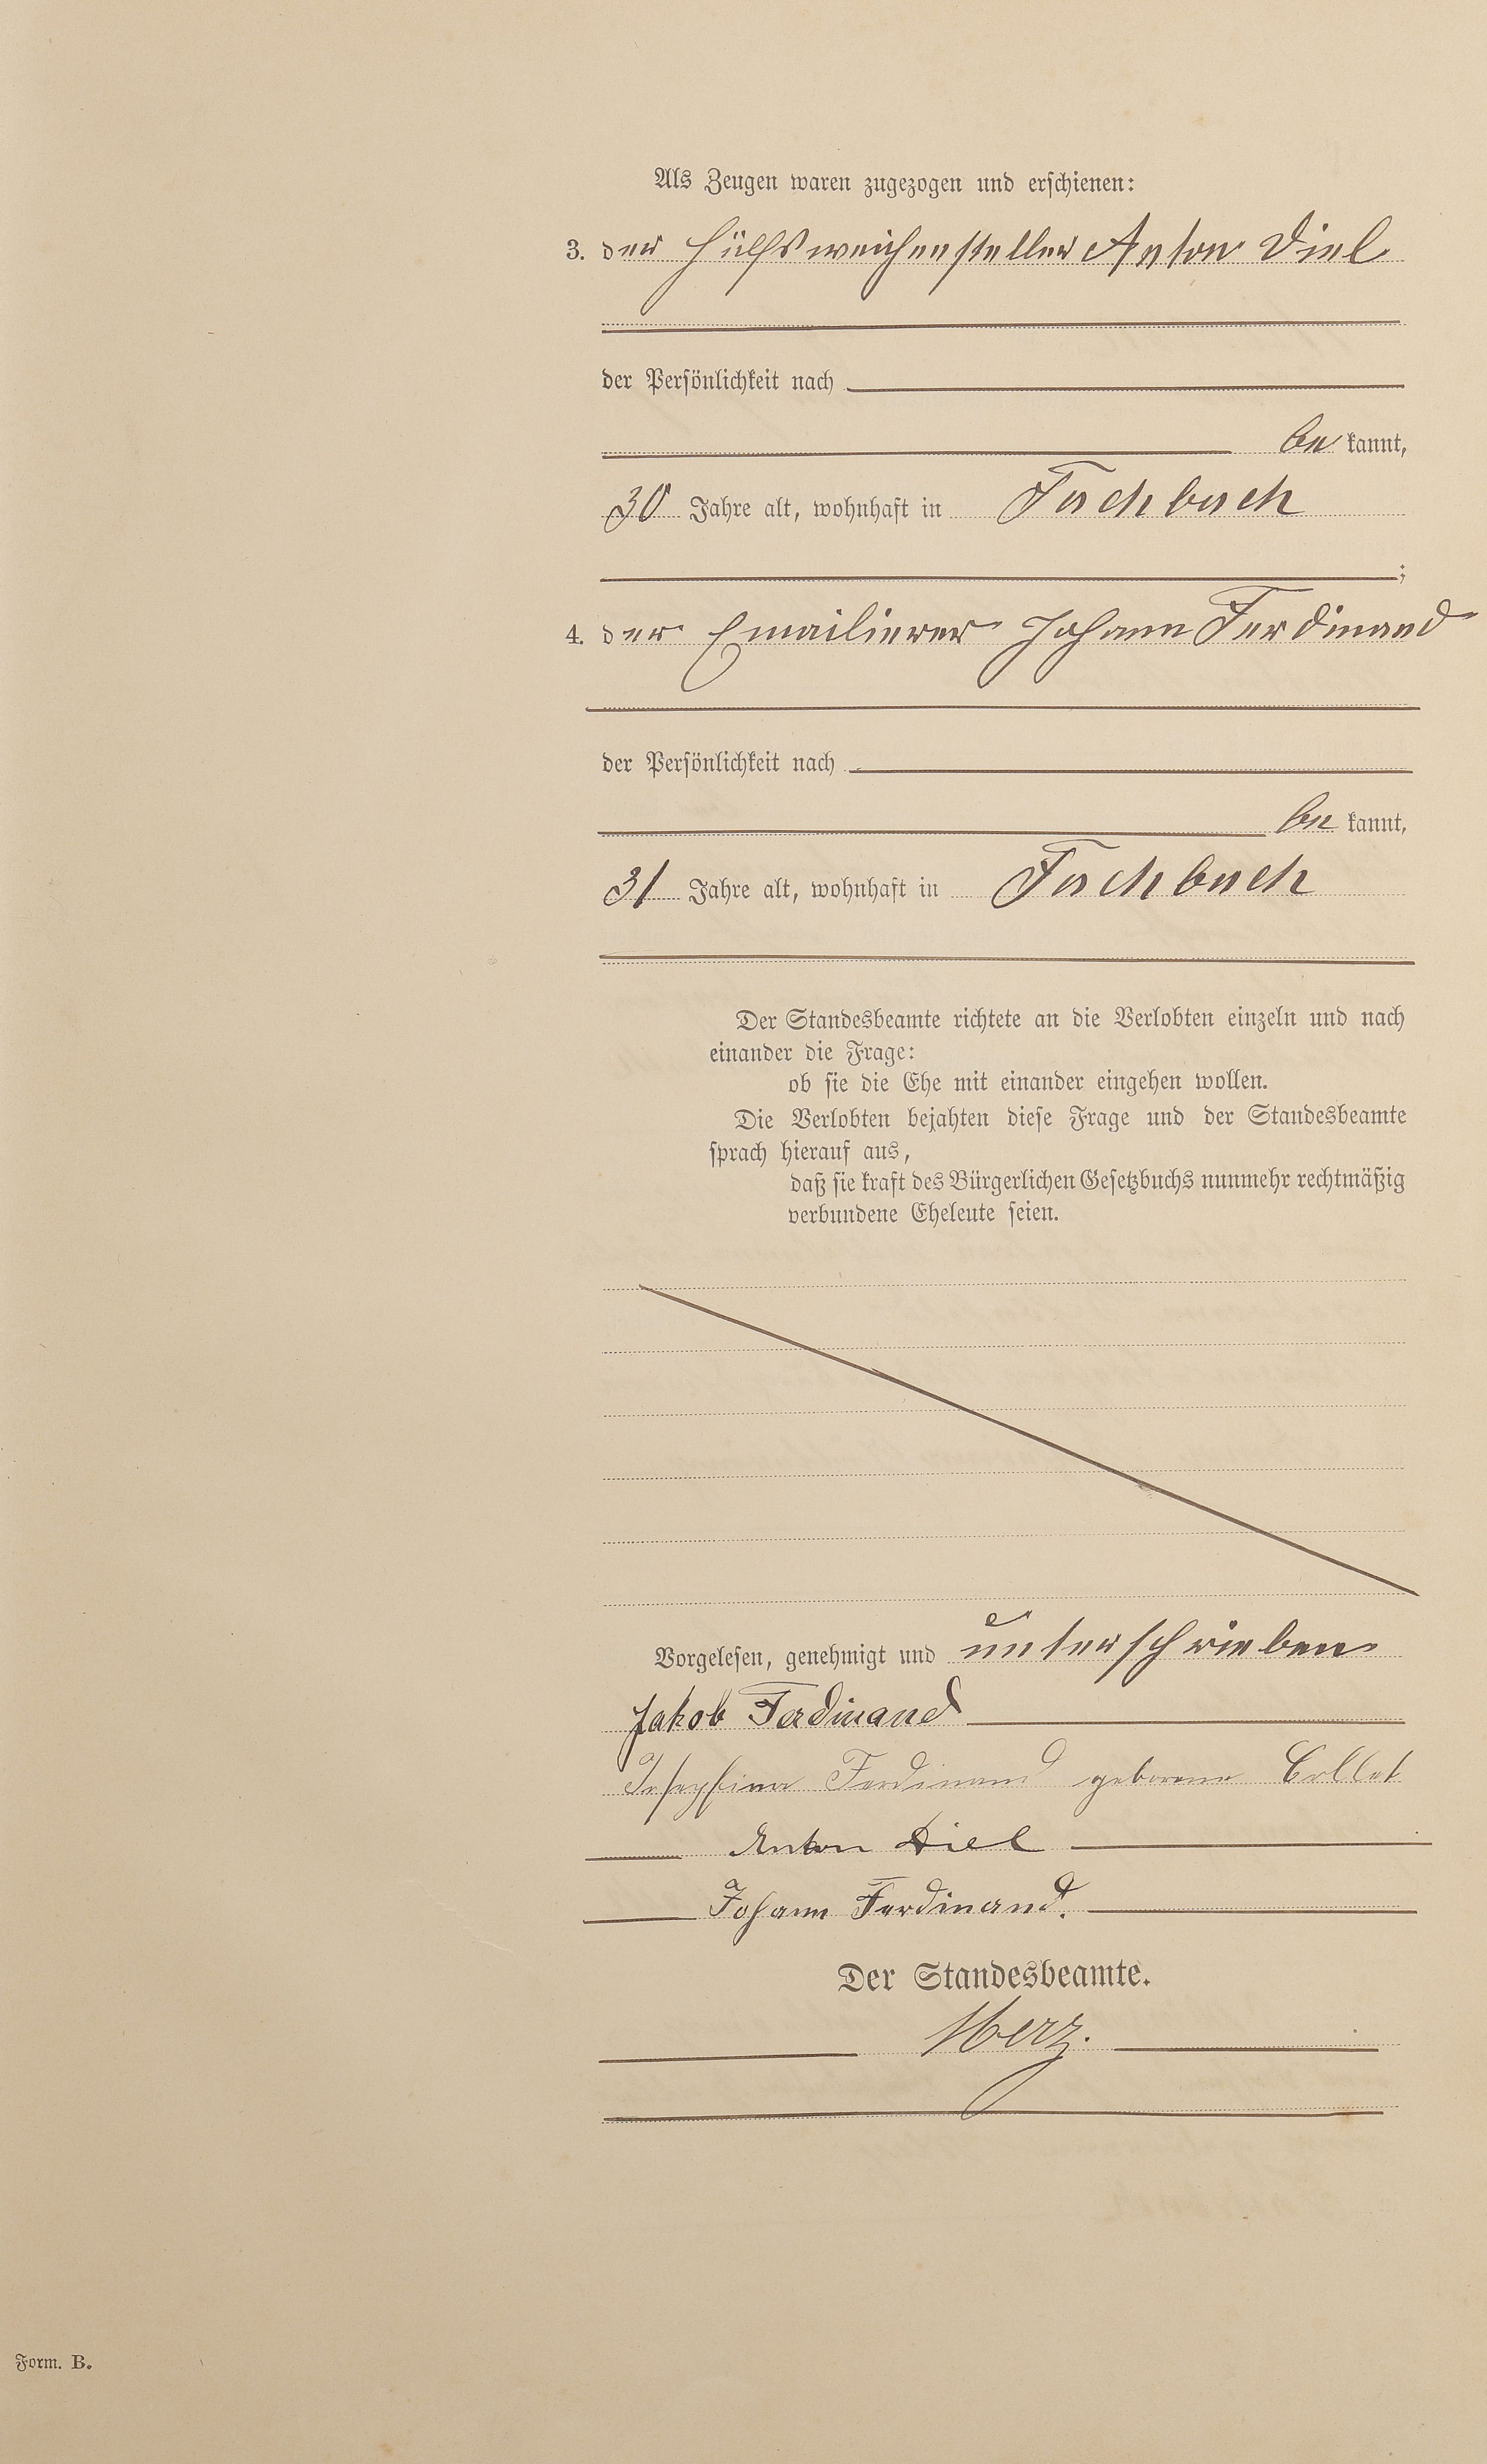 Als Zeugen waren zugezogen und erschienen:
3. der Hülfsweichensteller Anton Diel
der Persönlichkeit nach
be kannt,
30 Jahre alt, wohnhaft in Fachbach
;
4. der Emailierer Johann Ferdinand
der Persönlichkeit nach
be kannt,
31 Jahre alt, wohnhaft in Fachbach
Der Standesbeamte richtete an die Verlobten einzeln und nach
einander die Frage:
ob sie die Ehe mit einander eingehen wollen.
Die Verlobten bejahten diese Frage und der Standesbeamte
sprach hierauf aus,
daß sie kraft des Bürgerlichen Gesetzbuchs nunmehr rechtmäßig
verbundene Eheleute seien.
Vorgelesen, genehmigt und unterschrieben
Jakob Ferdinand
Josephina Ferdinand geborene Collet
Anton Diel
Johann Ferdinand.
Der Standesbeamte.
Merz.
Form. B.